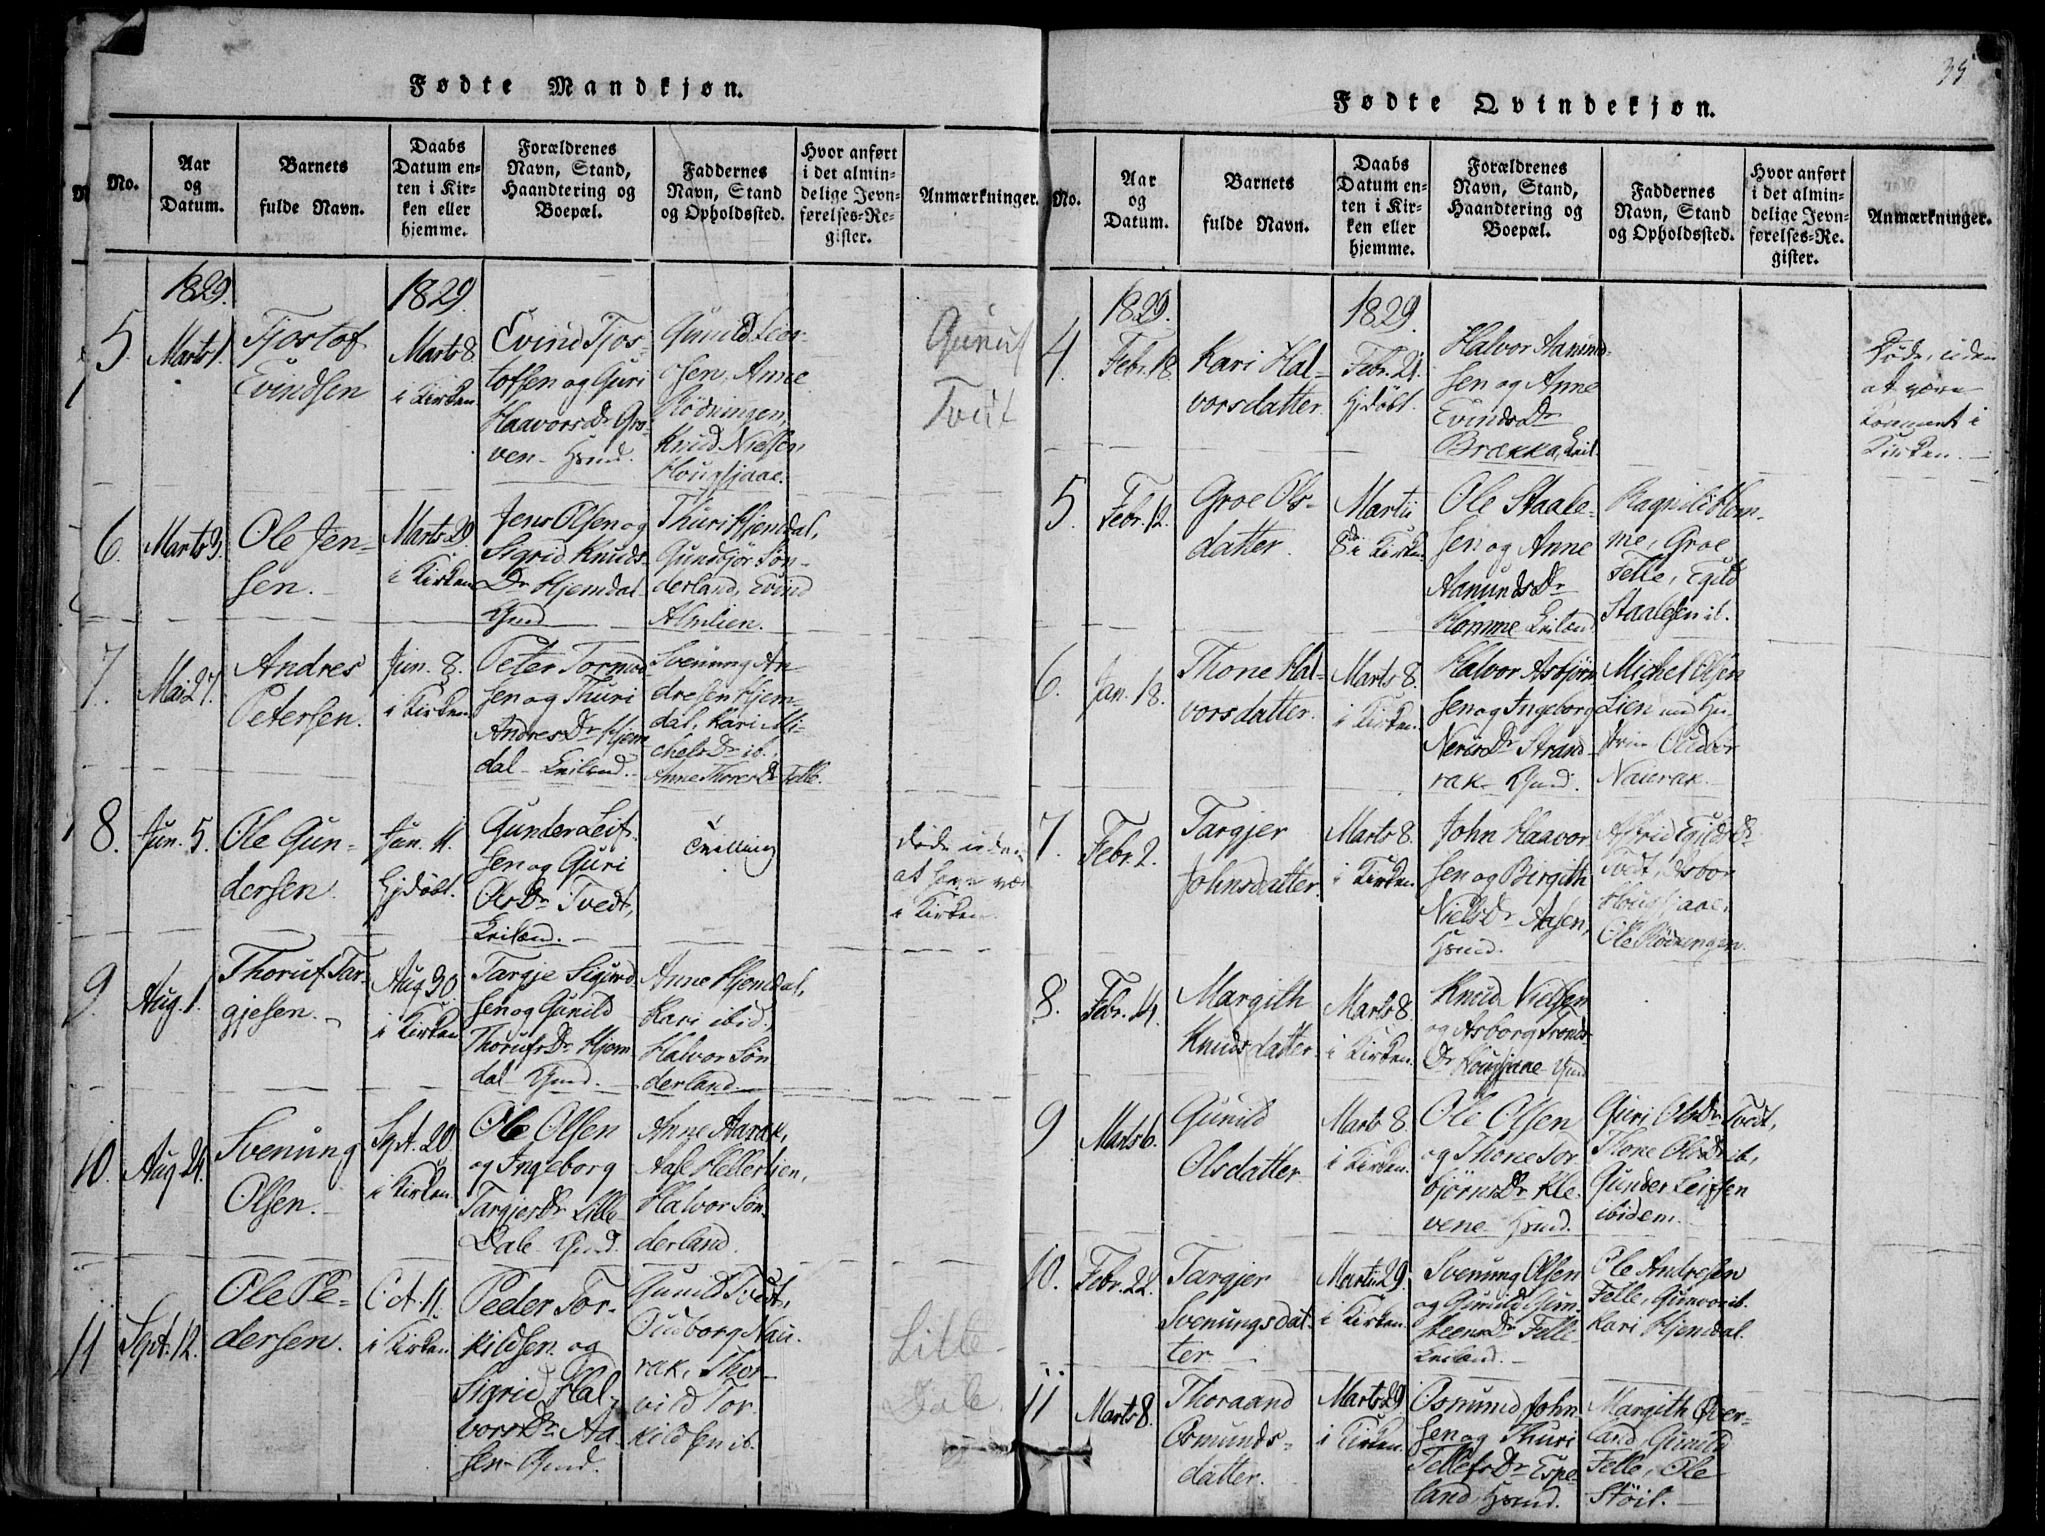 Fødte Mandkjøn.
No.
Aar
og
Datum.
Barnets
fulde Navn.
Daabs
Datum en-
ten i Kir-
ken eller
hjemme.
Forældrenes
Navn, Stand,
Haandtering og
Boepæl.
Faddernes
Navn, Stand
og Opholdssted.
Hvor anført
i det almin-
delige Jevn-
førelses-Re-
gister.
Anmærkninger.
1829.
1829.
5.
Marts 1.
Tjostof
Evindsen
Marts 8
i Kirken
Evind Tjos-
tofsen og Guri
Haavorsdr Gro-
ven
Gunild
Anne
Rödningen,
Knud Nielsen
Hougsjaae.
Tvedt
6.
Marts 3.
Ole Jen-
sen.
Marts 29
i Kirken
Jens Olsen og
Sigrid Knuds-
Dr Hjemdal
Thuri Hjemdal,
Gunbjör Søn-
derland, Evind
Almlien.
7.
Mai 27.
Andres
Petersen.
Jun. 8.
i Kirken
Peter
sen og Thuri
Andresdr Hjem-
dal
Svenung An-
dresen Hjem-
dal, Kari Mi-
chelsdr ib.
Anne Thoresdr Felle.
8.
Jun. 5.
Ole Gun-
dersen.
Jun. 11.
Hjdöbt.
Gunder Leif-
sen og Guri
Olsdr Tvedt,
Tvilling
döde uden
at have vær
i Kirken.
9.
Aug. 1.
Thoruf Tar-
gjesen.
Aug 30
i Kirken
Targje Sigurd-
sen og Gunild
Thorufsdr Hjem-
dal
Anne Hjemdal,
Kari ibid.,
Halvor Søn-
derland.
10.
Aug 24.
Svenung
Olsen.
Spt. 20.
i Kirken
Ole Olsen
og Ingeborg
Targjersdr Lille-
Dale
Anne Aarak,
Aase
Halvor Søn-
derland.
11
Sept. 12.
Ole Pe-
dersen.
Oct. 11.
i Kirken
Peder Tor-
kildsen og
Sigrid Hal-
vorsdr Aa-
sen
Gunild Tvedt,
Oudborg Nau-
rak, Thor-
vild Tor-
kildsen ib.
Lille-
Dale.
35
Fødte Qvindekjøn.
No.
Aar
og
Datum.
Barnets
fulde Navn.
Daabs
Datum en-
ten i Kir-
ken eller
hjemme.
Forældrenes
Navn, Stand,
Haandtering og
Boepæl.
Faddernes
Navn, Stand
og Opholdssted.
Hvor anført
i det almin-
delige Jevn-
førelses-Re-
gister.
Anmærkninger.
1829.
1829.
4.
Febr. 18.
Kari Hal-
vorsdatter.
Febr. 21.
Hjdöbt.
Halvor Aanund-
sen og Anne
Evindsdr
Brækka
Døde, uden
at være
kommet i
Kirken.
5.
Febr. 12.
Groe Ols-
datter.
Martii
8de i Kirken
Ole Staale-
sen og Anne
Aanundsdr
Homme
Ragnild Hom-
me, Groe
Felle, Egild
Staalesen ib.
6.
Jan. 18.
Thone Hal-
vorsdatter.
Marts 8.
i Kirken.
Halvor Asbjørn
sen og Ingeborg
Strand-
rak
Michel Olsen
Lien med Hu-
strue Oudbor
Naurak.
7.
Febr. 2.
Targjer
Johnsdatter.
Marts 8.
i Kirken.
John Haavor
sen og Birgith
Nielsdr Aasen,
Astrid Egildsdr
Tvedt,
Hougsjaae,
Ole Rödningen.
8.
Febr. 14.
Margith
Knudsdatter.
Marts 8.
i Kirken.
Knud Nielsen
og Asborg
Dr Hougsjaae
9
Marts 6.
Gunild
Olsdatter.
Marts 8.
i Kirken.
Ole Olsen
og Thone Tor
bjørnsdr Kle-
vene
Guri Olsdr Tvedt,
Thone Olsdr ib,
Gunder Leifsen
ibidem.
10.
Febr. 22.
Targjer
Svenungsdat-
ter.
Martii 29.
i Kirken.
Svenung Olsen
og Gunild
Felle
Ole Andresen
Felle, Gunvor ib.
Kari Hjemdal.
11
Marts 8.
Thoraand
Osmunds-
datter.
Marts 29
i Kirken.
Osmund John-
sen og Thuri
Tellefsdr Espe-
land
Margith Øver-
land, Gunild
Felle, Ole